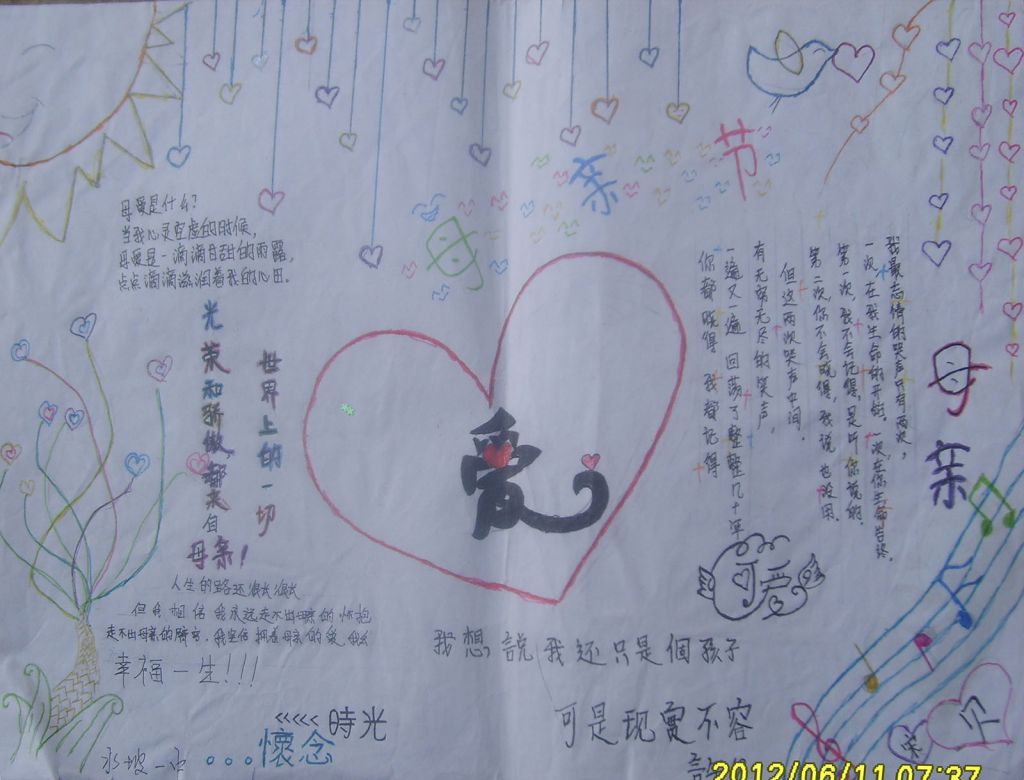 母亲节
母爱是什么?
当我心灵空虚的时候,
母爱是一滴滴甘甜的雨露,
点点滴滴滋润着我的心田。
世界上的一切
光荣和骄傲都来自
母亲!
人生的路还很长很长
但我相信我永远走不出母亲的怀抱
幸福一生!!!
爱
母亲
我最忘情的哭声只有两次,
一次在我生命的开始,一次在你生命告终
第一次,我不会记得,是听你说的
第二次,你不会晓得,我说也没用。
但这两次哭声中间,
有无穷无尽的笑声,
一遍又一遍 回荡了整整几十年
你都晓得 我都记得
可爱
我想説我还只是個孩子
可是现實不容
<<<<<時光
...懷念
2012/06/11 07:37